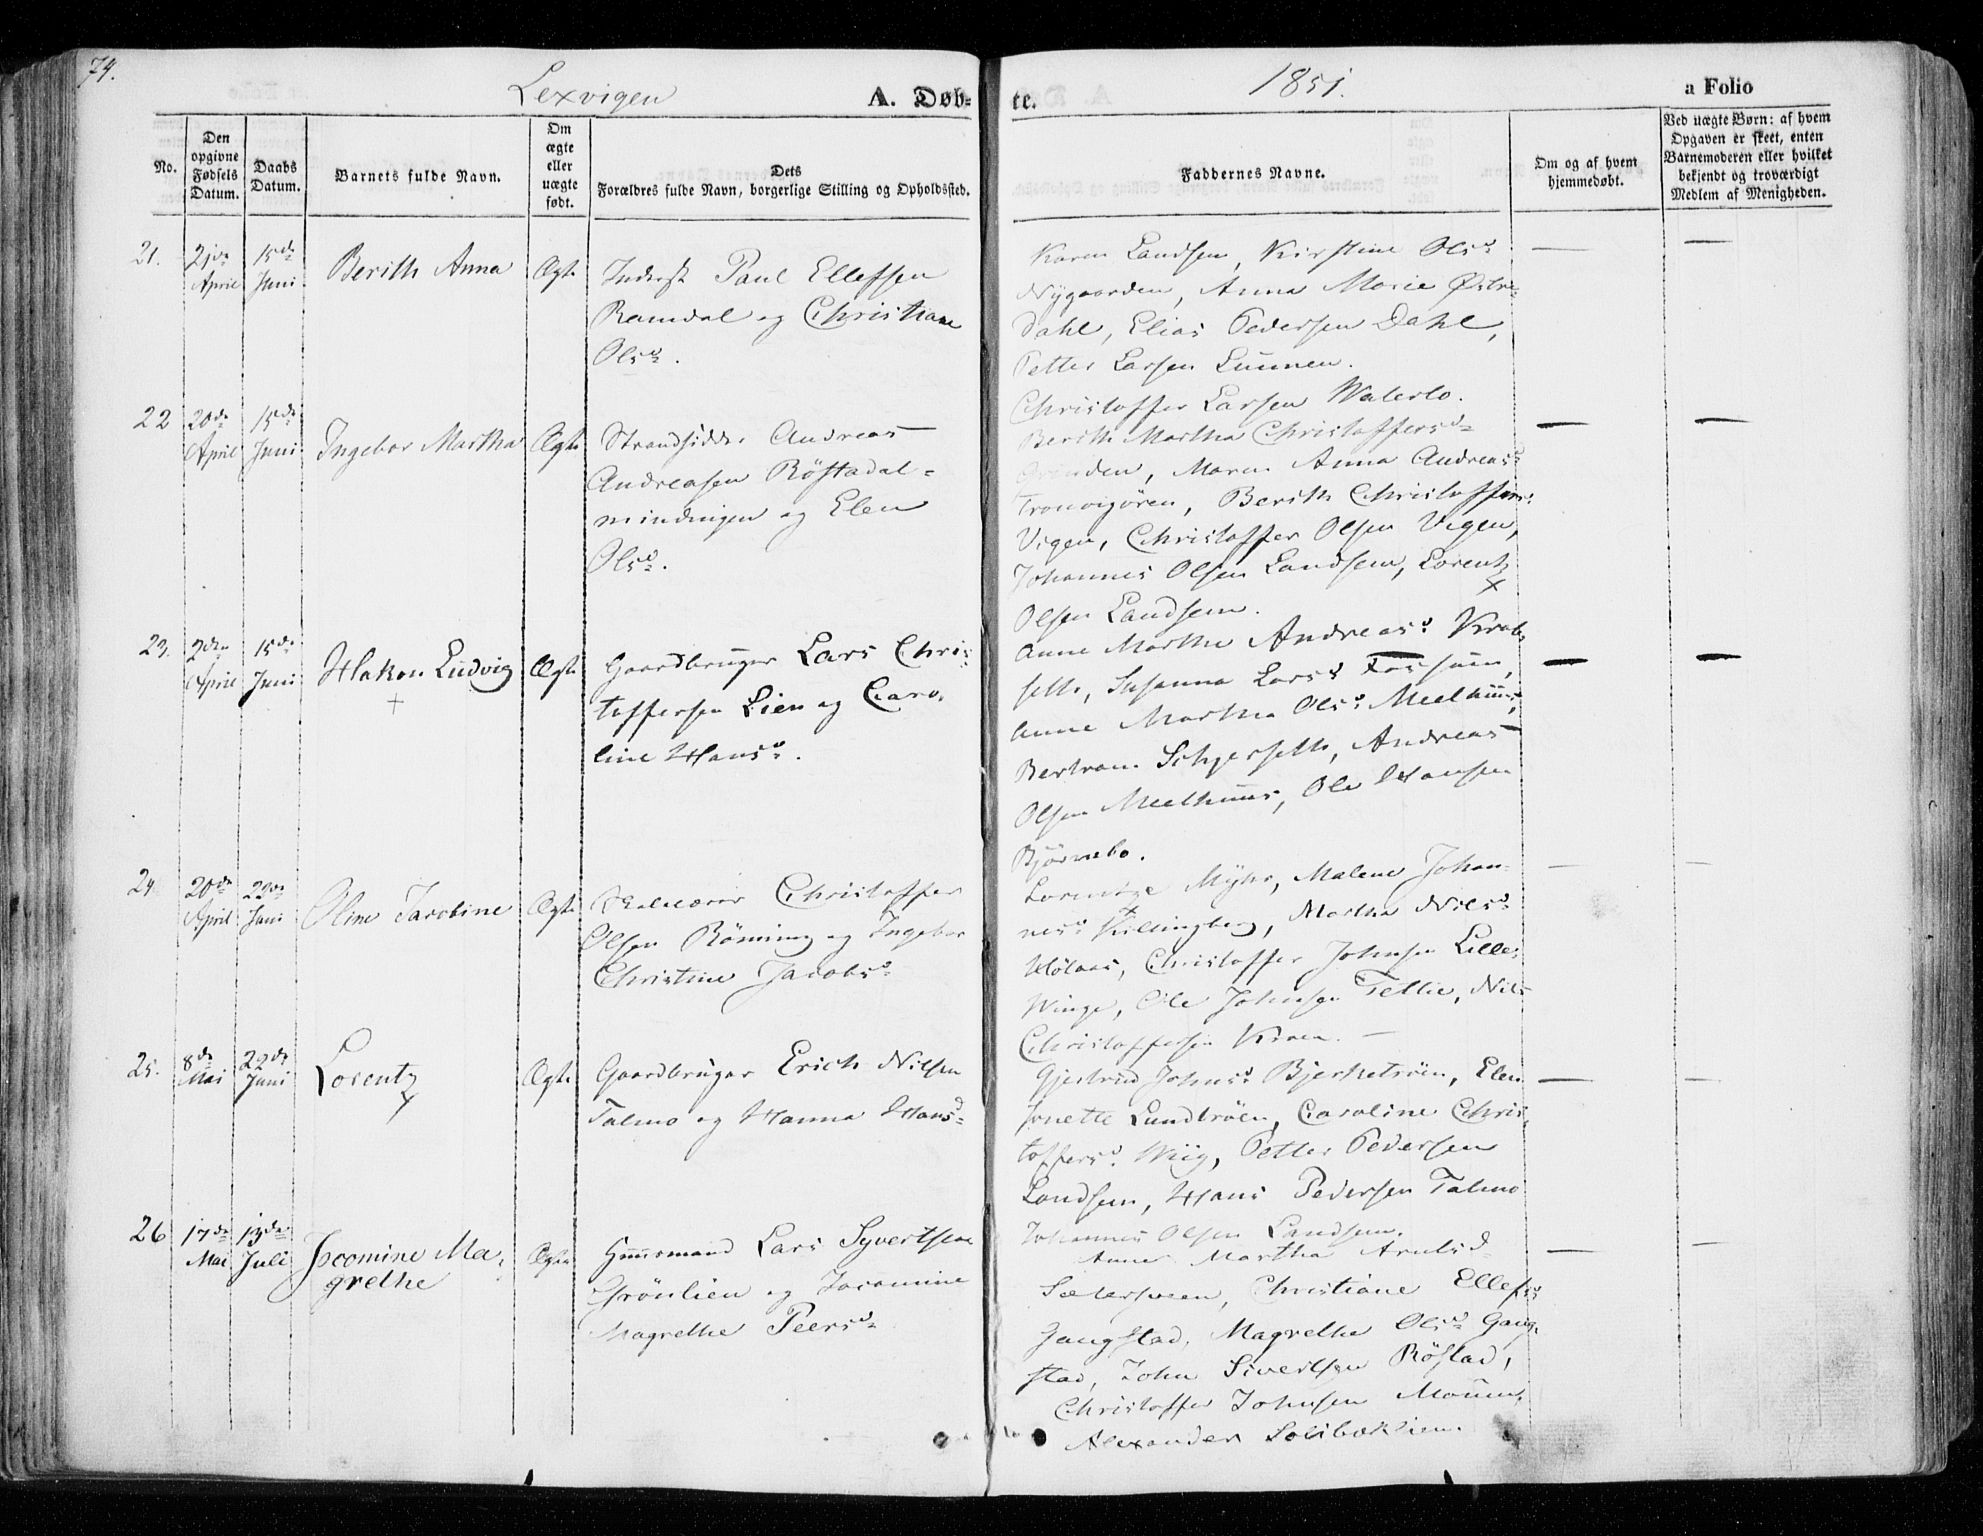 74.
Lexvigen
A. Døb-
te.
1851.
a Folio
No.
Den opgivne Fødsels Datum.
Daabs Datum.
Barnets fulde Navn.
Om ægte eller uægte født.
Dets Forældres fulde Navn, borgerlige Stilling og Opholdssted.
Faddernes Navne.
Om og af hvem hjemmedøbt.
Ved uægte Børn: af hvem Opgaven er skeet, enten Barnemoderen eller hvilket bekjendt og troværdigt Medlem af Menigheden.
21.
April
15de Juni
Berith Anna
Ægte
Paul Ellefsen
Ramdal og Christiane
Olsd.
Karen Landsem, Kirstine Olsd
Nygaarden, Anna Marie Østre
Dahl, Elias Pedersen Dahl,
Petter Larsen Luunen.
Christoffer Larsen Waterlo.
22
20de April
15de Juni
Ingebor Martha
Ægte
Strandsidder Andreas
Andreasen Röstadal-
mindingen og Elen
Olsd.
Berith Martha Christoffersd
Maren Anna Andreasd
Tronvigören, Berith Christoffersd
Vigen, Christoffer Olsen Vigen,
Johannes Olsen Landsem, Lorentz
Olsen Landsem.
23.
2den April
15de Juni
Hakon Ludvig
+
Ægte
Gaardbruger Lars Chris-
toffersen Lien og Caro-
line Hansd.
Anne Martha Andreasd.
Susanna Larsd
Anne Martha Olsd. Meelhuus,
Bertram Schjerseth, Andreas
Olsen Meelhuus, Ole Hansen
Björnebo.
24
20de April
22de Juni
Oline Jacobine
Ægte
Christoffer
Olsen Röming og Ingebor
Christine Jacobsd
Myhr, Malene Johan-
nesd Killingberg, Martha Nilsd
Hölaas, Christoffer Johnsen Lille-
Winge, Ole Johnsen Tettli, Nils
Christoffersen
25.
8de Mai
22de Juni
Lorentz
Ægte
Gaardbruger Erich Nilsen
Talmo og Hanna Hansd
Gjertrud Johnsd Bjerketröen, Elen
Jonette Lundtröen, Caroline Chris-
toffersd. Wiig, Petter Pedersen
Landsem, Hans Pedersen Talmo
Johannes Olsen Landsem.
26
17de Mai
13de Juli
Jocomine Ma-
grethe
Ægte
Huusmand Lars Syvertsen
Grönlien og Jacomine
Magrethe Peersd
Anne Martha Arntsd
Christiane Ellefsd
Gangstad, Magrethe Olsd Gang-
stad, John Sivertsen Röstad,
Christoffer Johnsen
Alexander Solibaklien.